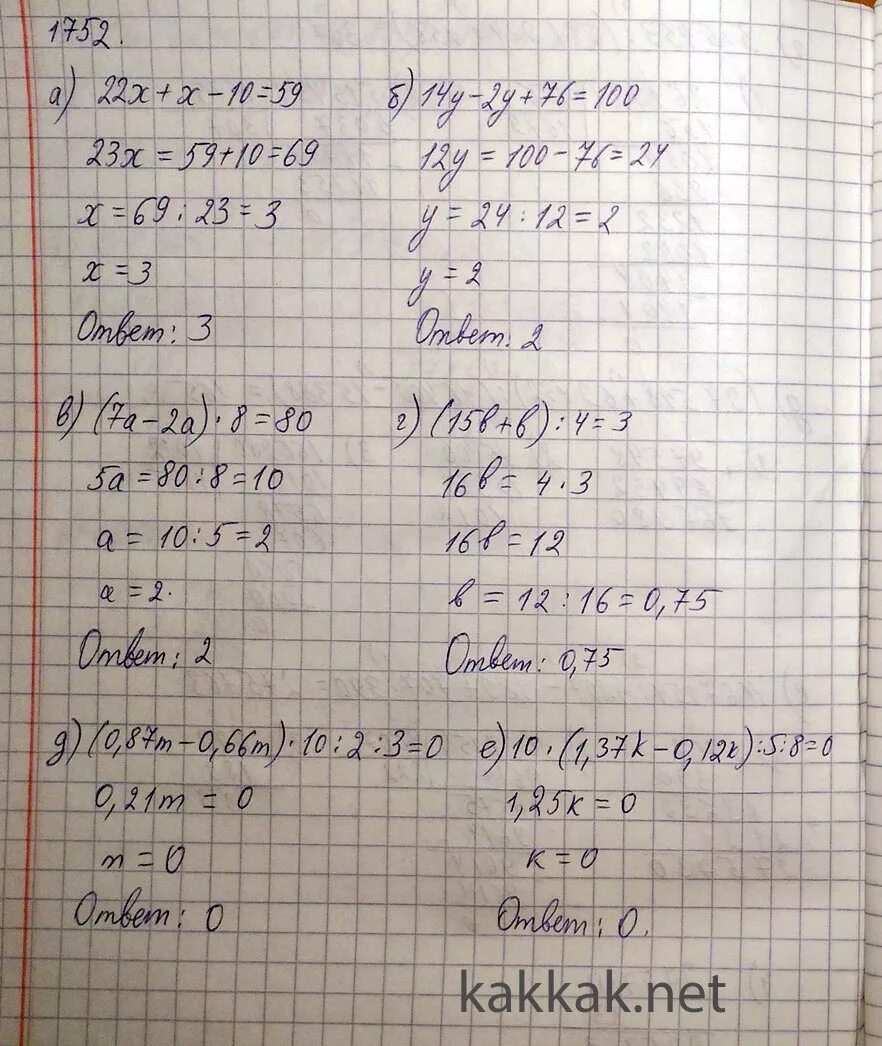 1752.
а) 22x + x - 10 = 59
23x = 59 + 10 = 69
x = 69 : 23 = 3
x = 3
Ответ: 3
б) 14y - 2y + 76 = 100
12y = 100 - 76 = 24
y = 24 : 12 = 2
y = 2
Ответ: 2
в) (7a - 2a) · 8 = 80
5a = 80 : 8 = 10
a = 10 : 5 = 2
a = 2.
Ответ: 2
г) (15в + в) : 4 = 3
16в = 4 · 3
16в = 12
в = 12 : 16 = 0,75
Ответ: 0,75
д) (0,87m - 0,66m) · 10 : 2 : 3 = 0
0,21m = 0
m = 0
Ответ: 0
е) 10 · (1,37k - 0,12k) : 5 : 8 = 0
1,25k = 0
k = 0
Ответ: 0.
kakkak.net